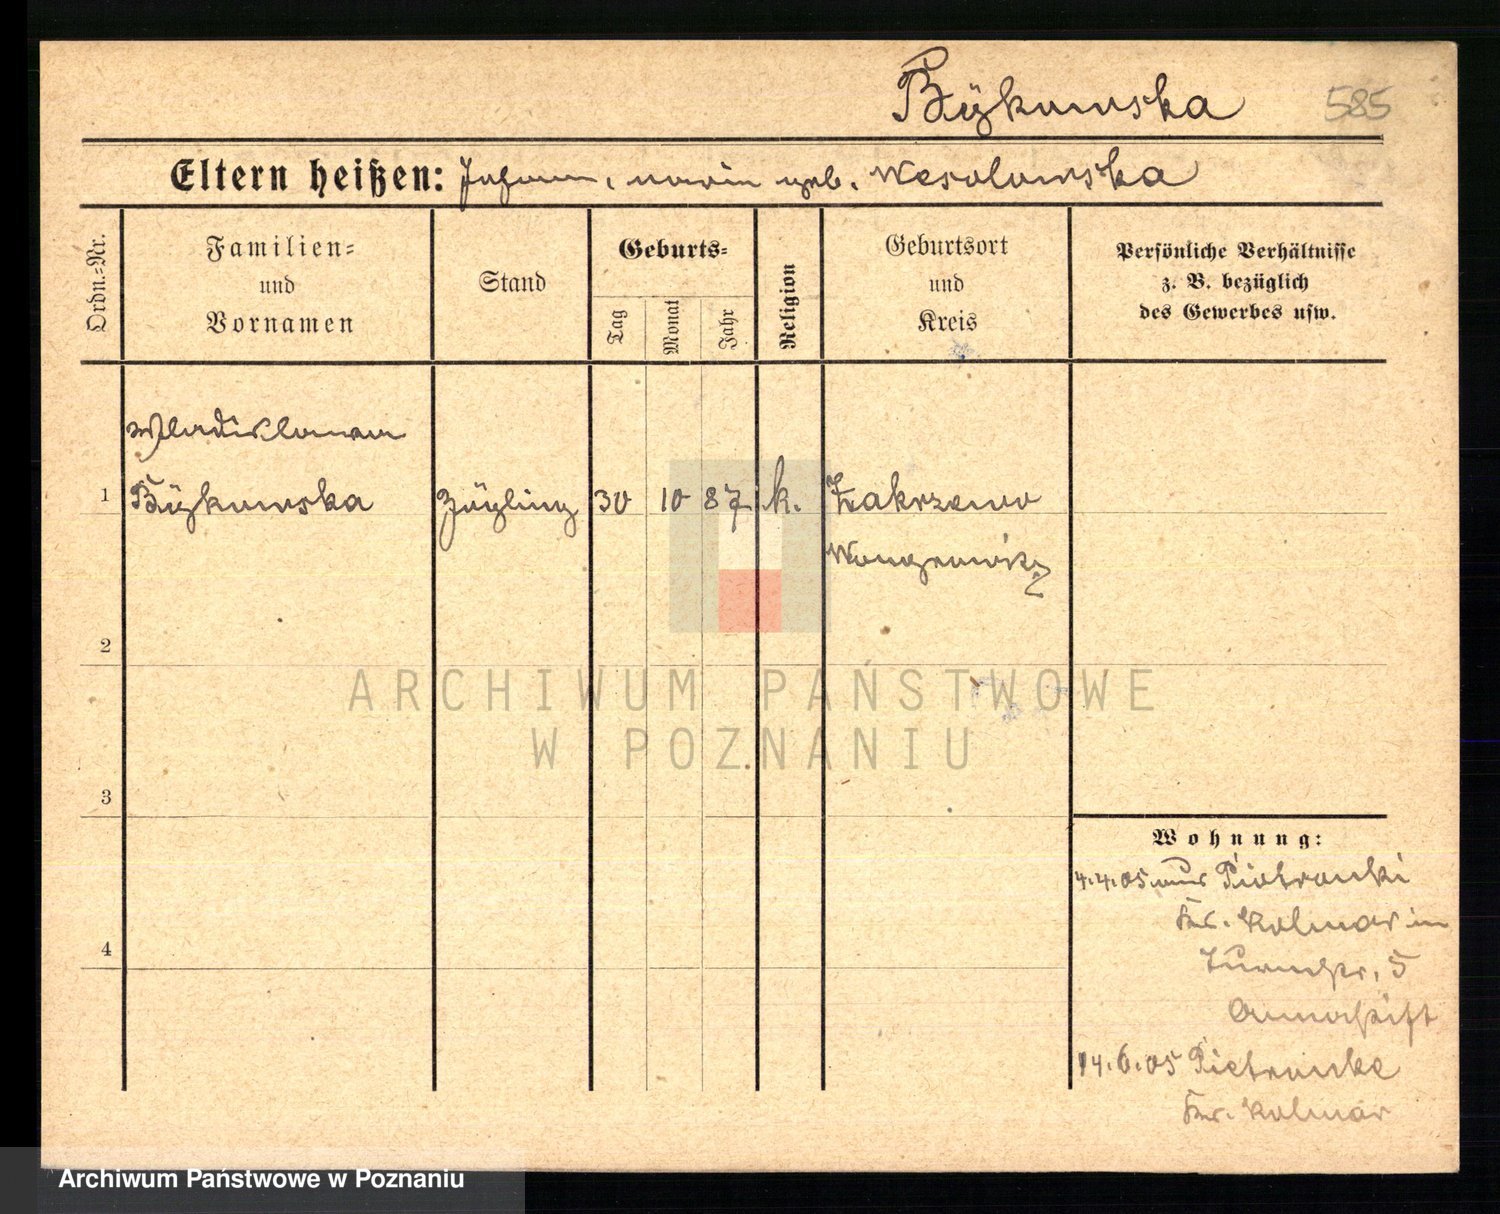 Bÿkowska 585
Eltern heißen: Johann, Marie geb. Wesolowska
Ordn.-Nr.
Familien-
und
Vornamen
Stand
Geburts-
Tag
Monat
Jahr
Religion
Geburtsort
und
Kreis
Persönliche Verhältnisse
z. B. bezüglich
des Gewerbes usw.
Wladislawa
1 Bÿkowska Zögling 30 10 87 k. Zakrzewo
Wongrowitz
2
3
4
Wohnung:
4.4.05 aus Piotronki
Kr. Kolmar in
Turmstr. 5
Annastift
14.6.05 Pietronke
Kr. Kolmar
ARCHIWUM PAŃSTWOWE
W POZNANIU
Archiwum Państwowe w Poznaniu